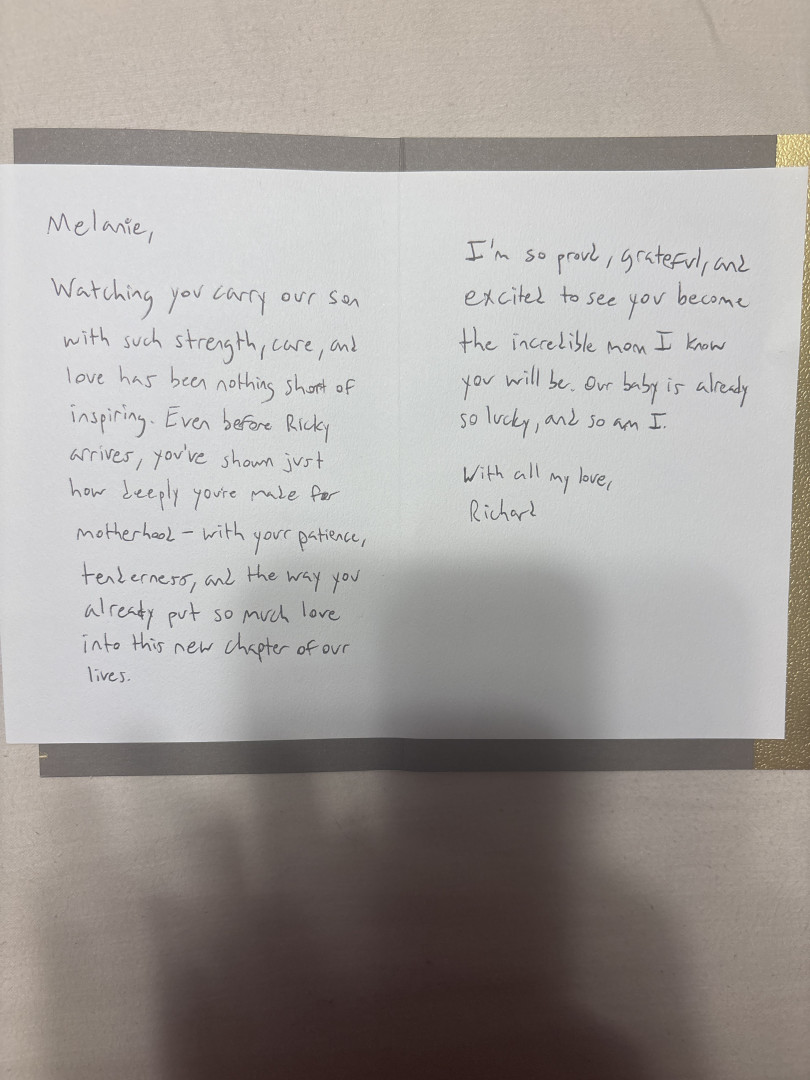 Melanie,
Watching you carry our son
with such strength, care, and
love has been nothing short of
inspiring. Even before Ricky
arrives, you've shown just
how deeply you're made for
motherhood – with your patience,
tenderness, and the way you
already put so much love
into this new chapter of our
lives.
I'm so proud, grateful, and
excited to see you become
the incredible mom I know
you will be. Our baby is already
so lucky, and so am I.
With all my love,
Richard